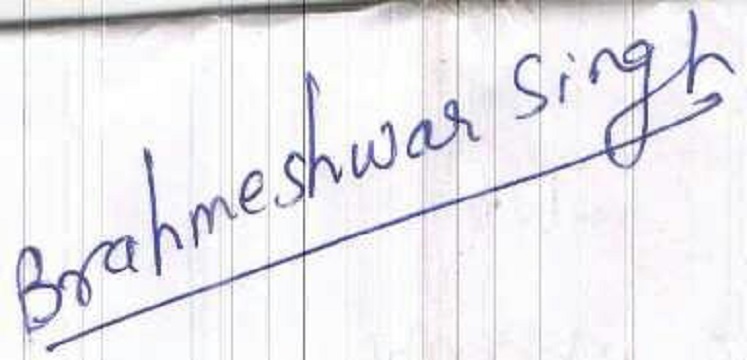 Brahmeshwar Singh